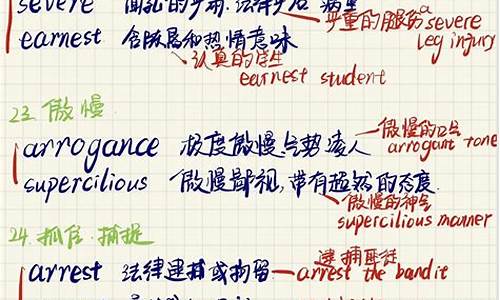 severe
严重的腿伤 a severe leg injury
earnest 含孩
认真的学生
earnest student
23. 傲慢
arrogance 极度傲慢,气势凌人
傲慢的口气
arrogant tone
supercilious 傲慢鄙视,带有超然的态度
傲慢的神气
supercilious manner
24. 抓住、捕捉
arrest 法律逮捕或拘留
逮捕匪徒
arrest the bandit